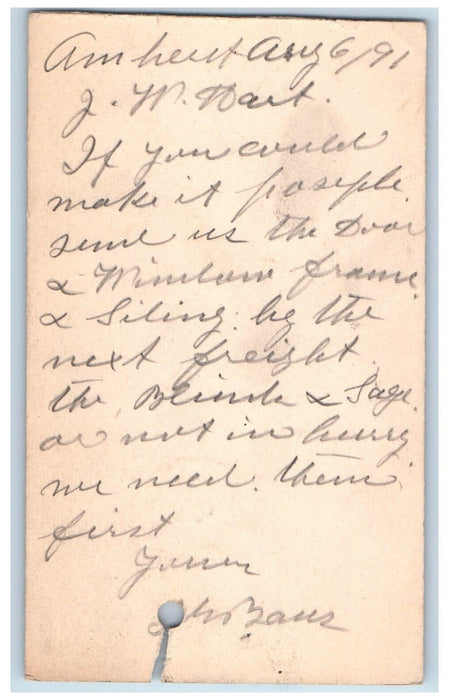 Amherst Aug 6/91
J. W. Hart.
If you could
make it posiple
send us the Door
& Window frame
& Siling by the
next freight
the Blinds & Sage
ar not in hurry
we need them
first
Yours
Baus